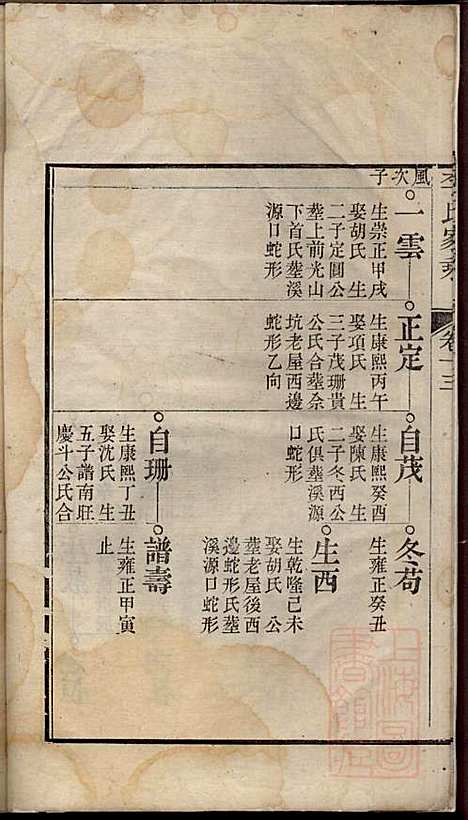 氏家乘
卷十三
風次子
一雲
生崇正甲戌
娶胡氏 生
二子定圓公
塟上前光山
下首氏塟溪
源口蛇形
正定
生康熙丙午
娶項氏 生
三子茂珊貴
公氏合塟佘
坑老屋西邊
蛇形乙向
自茂
生康熙癸酉
娶陳氏 生
二子冬西公
氏俱塟溪源
口蛇形
冬苟
生雍正癸丑
生西
生乾隆己未
娶胡氏 公
塟老屋後西
邊蛇形氏塟
溪源口蛇形
自珊
生康熙丁丑
娶沈氏 生
五子譜南旺
慶斗公氏合
譜壽
生雍正甲寅
止
上海圖
書館藏